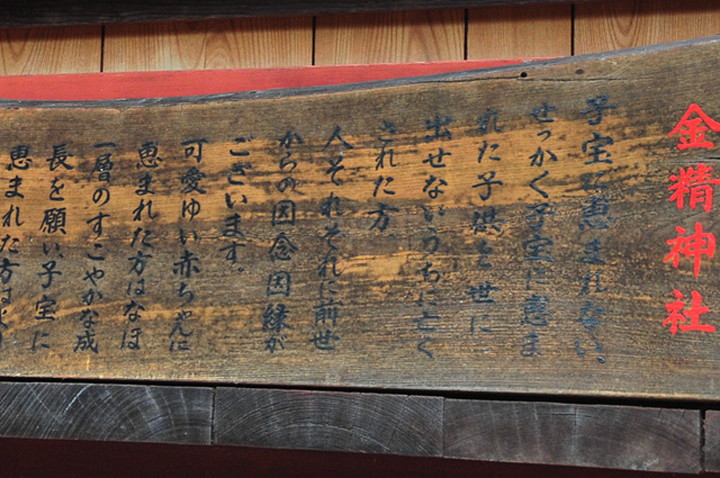 金精神社
子宝に恵まれない、
せっかく子宝に恵ま
れた子供を世に
出せないうちに亡く
された方
人それそれに前世
からの因念因縁が
ございます。
可愛ゆい赤ちゃんに
恵まれた方はなほ
一層のすこやかな成
長を願い、子宝に
恵まれた方はより